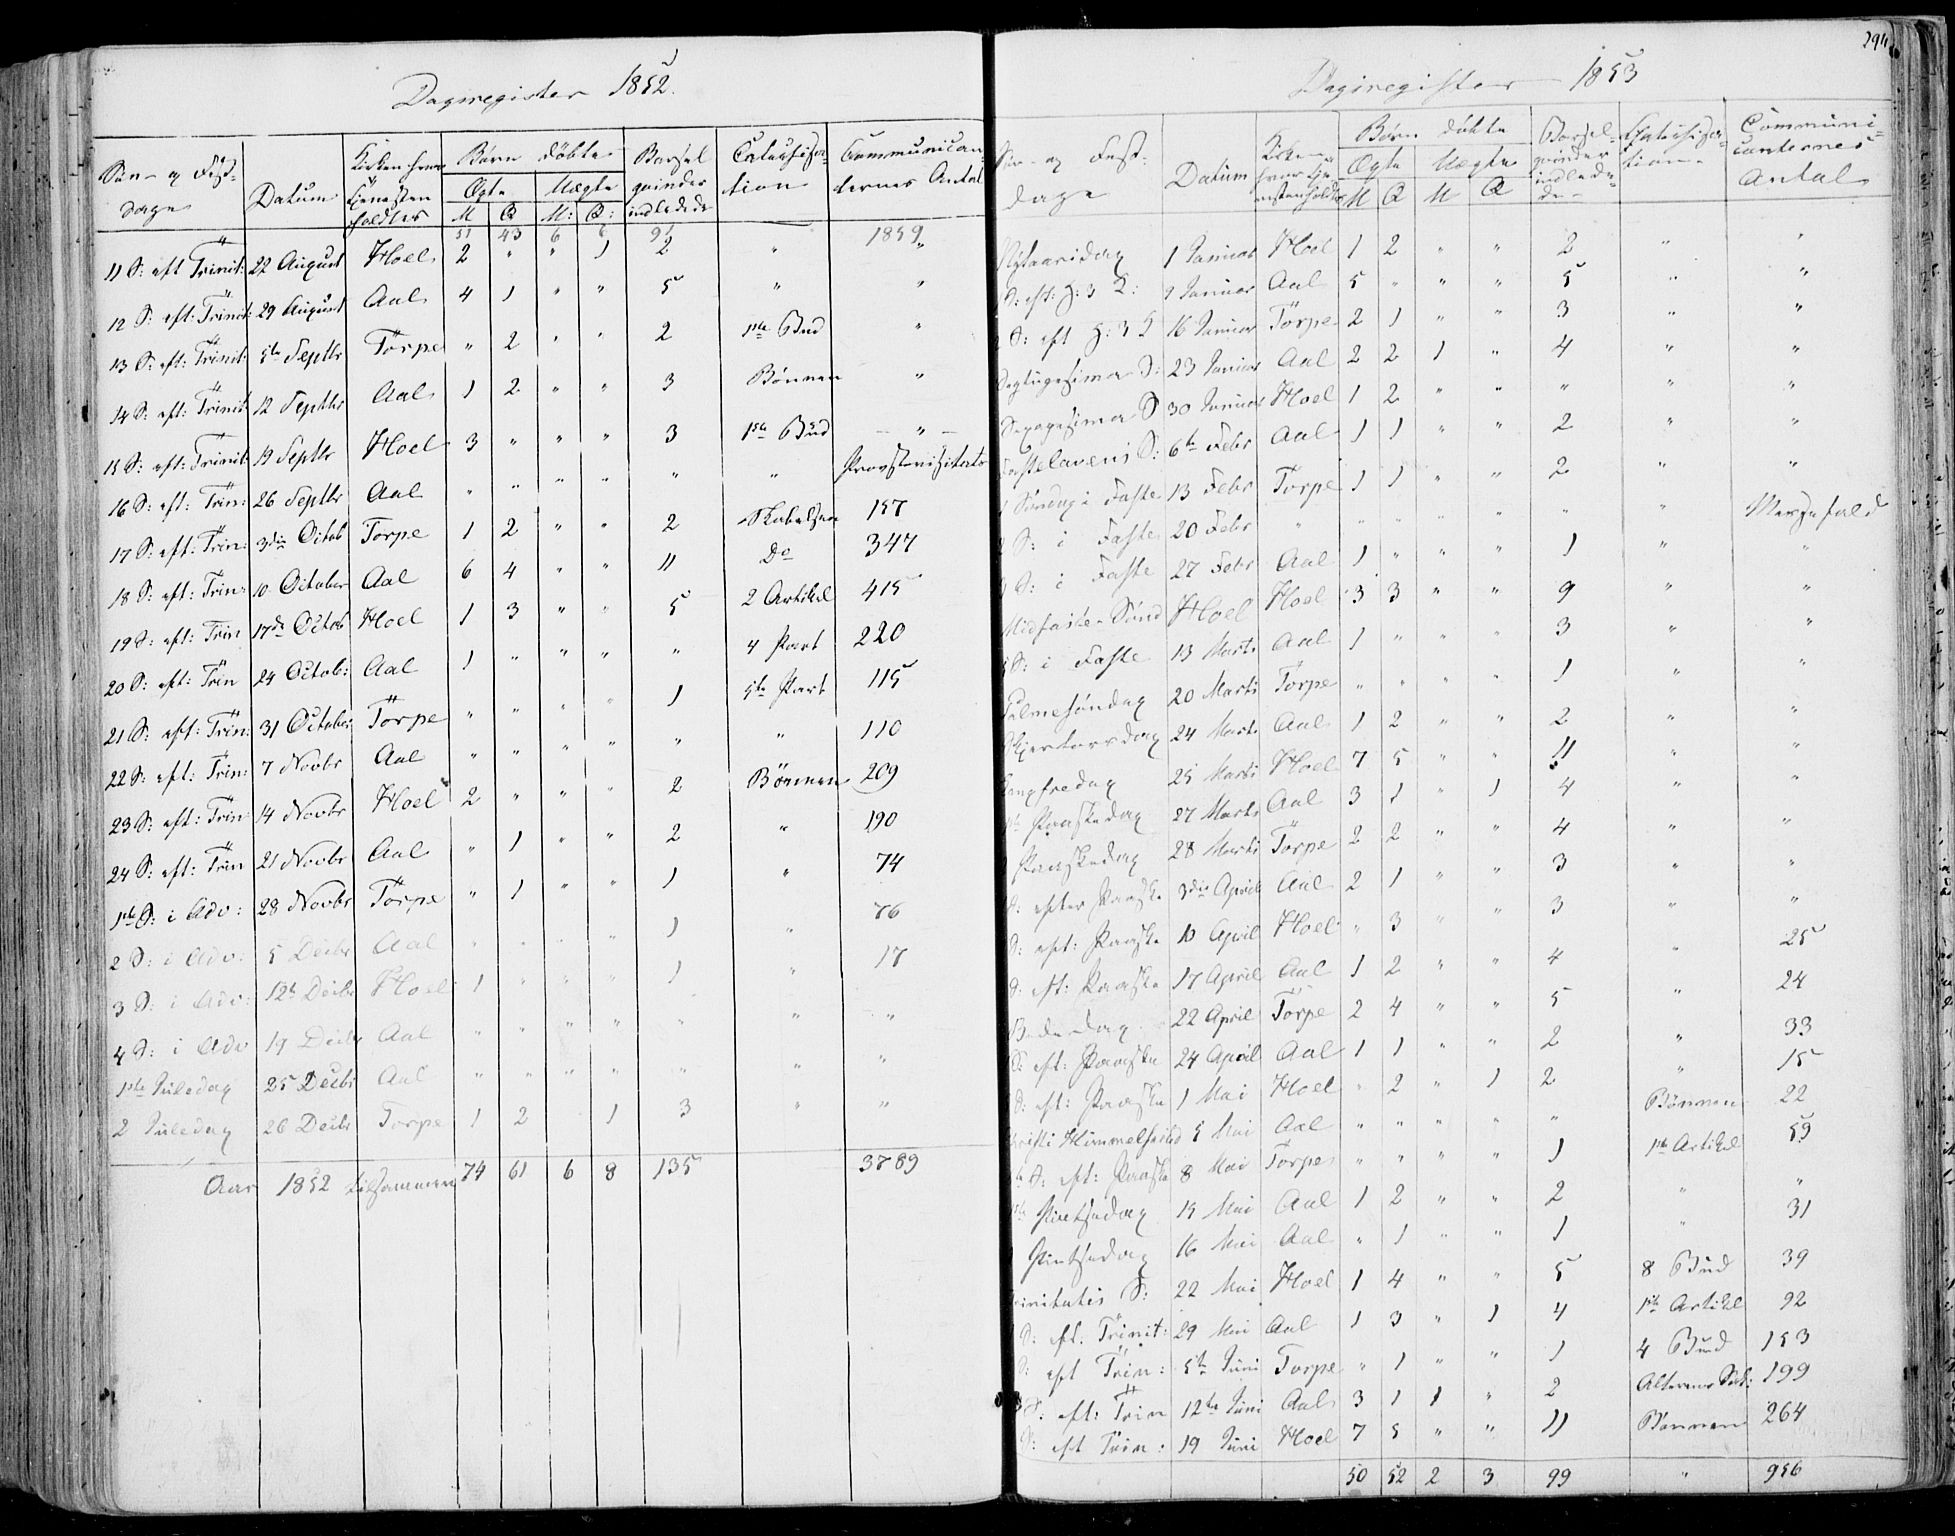 294
Dagsregister 1852.
Søn- og Fest-dage | Datum | Kirken hvor Tjenesten holdtes | Børn døbte | Barselqvinder indledede | Catechisation | Communicanternes Antal
Ægte | Uægte
M | Q | M: | Q:
51 43 6 6 91 1859
11 S: eft Trinit: 22 August Hoel 2 " " 1 2 " "
12 S: eft: Trinit: 29 August Aal 4 1 " " 5 " "
13 S: eft: Trinit: 5te Septbr Torpe " 2 " " 2 1ste Bud "
14 S: eft: Trinit: 12 Septbr Aal 1 2 " " 3 Bønnen "
15 S: eft: Trinit: 19 Septbr Hoel 3 " " " 3 1ste Bud - " -
16 S: eft: Trin: 26 Septbr Aal " " " " " " Provstevisitats
17 S: eft: Trin: 3die Octob Torpe 1 2 " " 2 Skabelsen 157
18 S: eft: Trin: 10 October Aal 6 4 " " 11 Do 347
19 S: eft: Trin 17de Octob Hoel 1 3 " " 5 2 Artikel 415
20 S: eft: Trin 24 Octob: Aal 1 " " " " 4 Part 220
21 S: eft: Trin: 31 October Torpe " " " " 1 5te Part 115
22 S: eft: Trin: 7 Novbr Aal " " " " " " 110
23 S: eft: Trin 14 Novbr Hoel 2 " " " 2 Bönnen 209
24 S: eft: Trin 21 Novbr Aal " 1 " " 2 " 190
1ste S: i Adv: 28 Novbr Torpe " 1 " " 1 " 74
2 S: i Adv: 5 Decbr Aal " " " " 1 " 76
3 S: i Adv: 12te Decbr Hoel 1 " " " 1 " 17
4 S: i Adv 19 Decbr Aal " " " " " " "
1ste Juledag 25 Decbr Aal " " " " " " "
2 Juledag 26 Decbr Torpe 1 2 1 3 " "
Aar 1852 tilsammen 74 61 6 8 135 3789
Dagsregister 1853
Søn- og Fest-dage | Datum | Kirke hvor Tjenesten holdtes | Børn døbte | Barselqvinder indledede | Catechisation | Communicanternes Antal
Ægte | Uægte
M | Q | M | Q
Nytaarsdag 1 Januar Hoel 1 2 " " 2 " "
S: eft: H: 3 K: 9 Januar Aal 5 " " " 5 " "
S: eft H: 3 K 16 Januar Torpe 2 1 " " 3 " "
Septuagesima S: 23 Januar Aal 2 2 1 " 4 " "
Sexagesima S 30 Januar Hoel 1 2 " " " " "
Fastelavens S: 6te Febr Aal 1 1 " " 2 " "
Søndag i Faste 13 Febr Torpe 1 1 " " 2 " "
S: i Faste 20 Febr " " " " " " " Messefald
S: i Faste 27 Febr Aal 1 " " " 1 " "
Midfaste Sønd Hoel Hoel 3 3 " " 9 " "
S: i Faste 13 Marts Aal 1 " " " 3 " "
Palmesøndag 20 Marts Torpe " " " " 1 " "
Skjertorsdag 24 Marts Aal 1 2 " " 2 " "
Langfredag 25 Marts Hoel 7 5 " " 11 " "
1ste Paaskedag 27 Marts Aal 3 1 " 1 4 " "
Paaskedag 28 Marts Torpe 2 2 " " 4 " "
S: efter Paaske 3die April Aal 2 1 " " 3 " "
S: eft: Paaske 10 April Hoel " 3 " " 3 " "
S: eft: Paaske 17 April Aal 1 2 " " 4 " 25
Bededag 22 April Torpe 2 4 " " 5 " 24
S: eft: Paaske 24 April Aal 1 1 " " 2 " 33
S: eft: Paaske 1 Mai Hoel " 2 " 1 2 " 15
Christi Himmelfartsd 5 Mai Aal " " " " " Bönnen 22
S: eft: Paaske 8 Mai Torpe " " " " 1 1ste Artikel 59
Pintsedag 15 Mai Aal 1 2 " " 2 " "
Pintsedag 16 Mai Aal " 1 " " 1 " 31
Trinitatis S: 22 Mai Hoel 1 4 " " 5 8 Bud 39
S: eft. Trinit: 29 Mai Aal 1 3 " 1 4 1ste Artikel 92
S: eft Trin: 5te Juni Torpe " 1 " " 1 4 Bud 153
S: eft: Trin 12te Juni Aal 3 1 1 " 2 Alterens Sak: 199
S: eft Trin: 19 Juni Hoel 7 5 " " 11 Bønnen 264
50 52 2 3 99 " 956